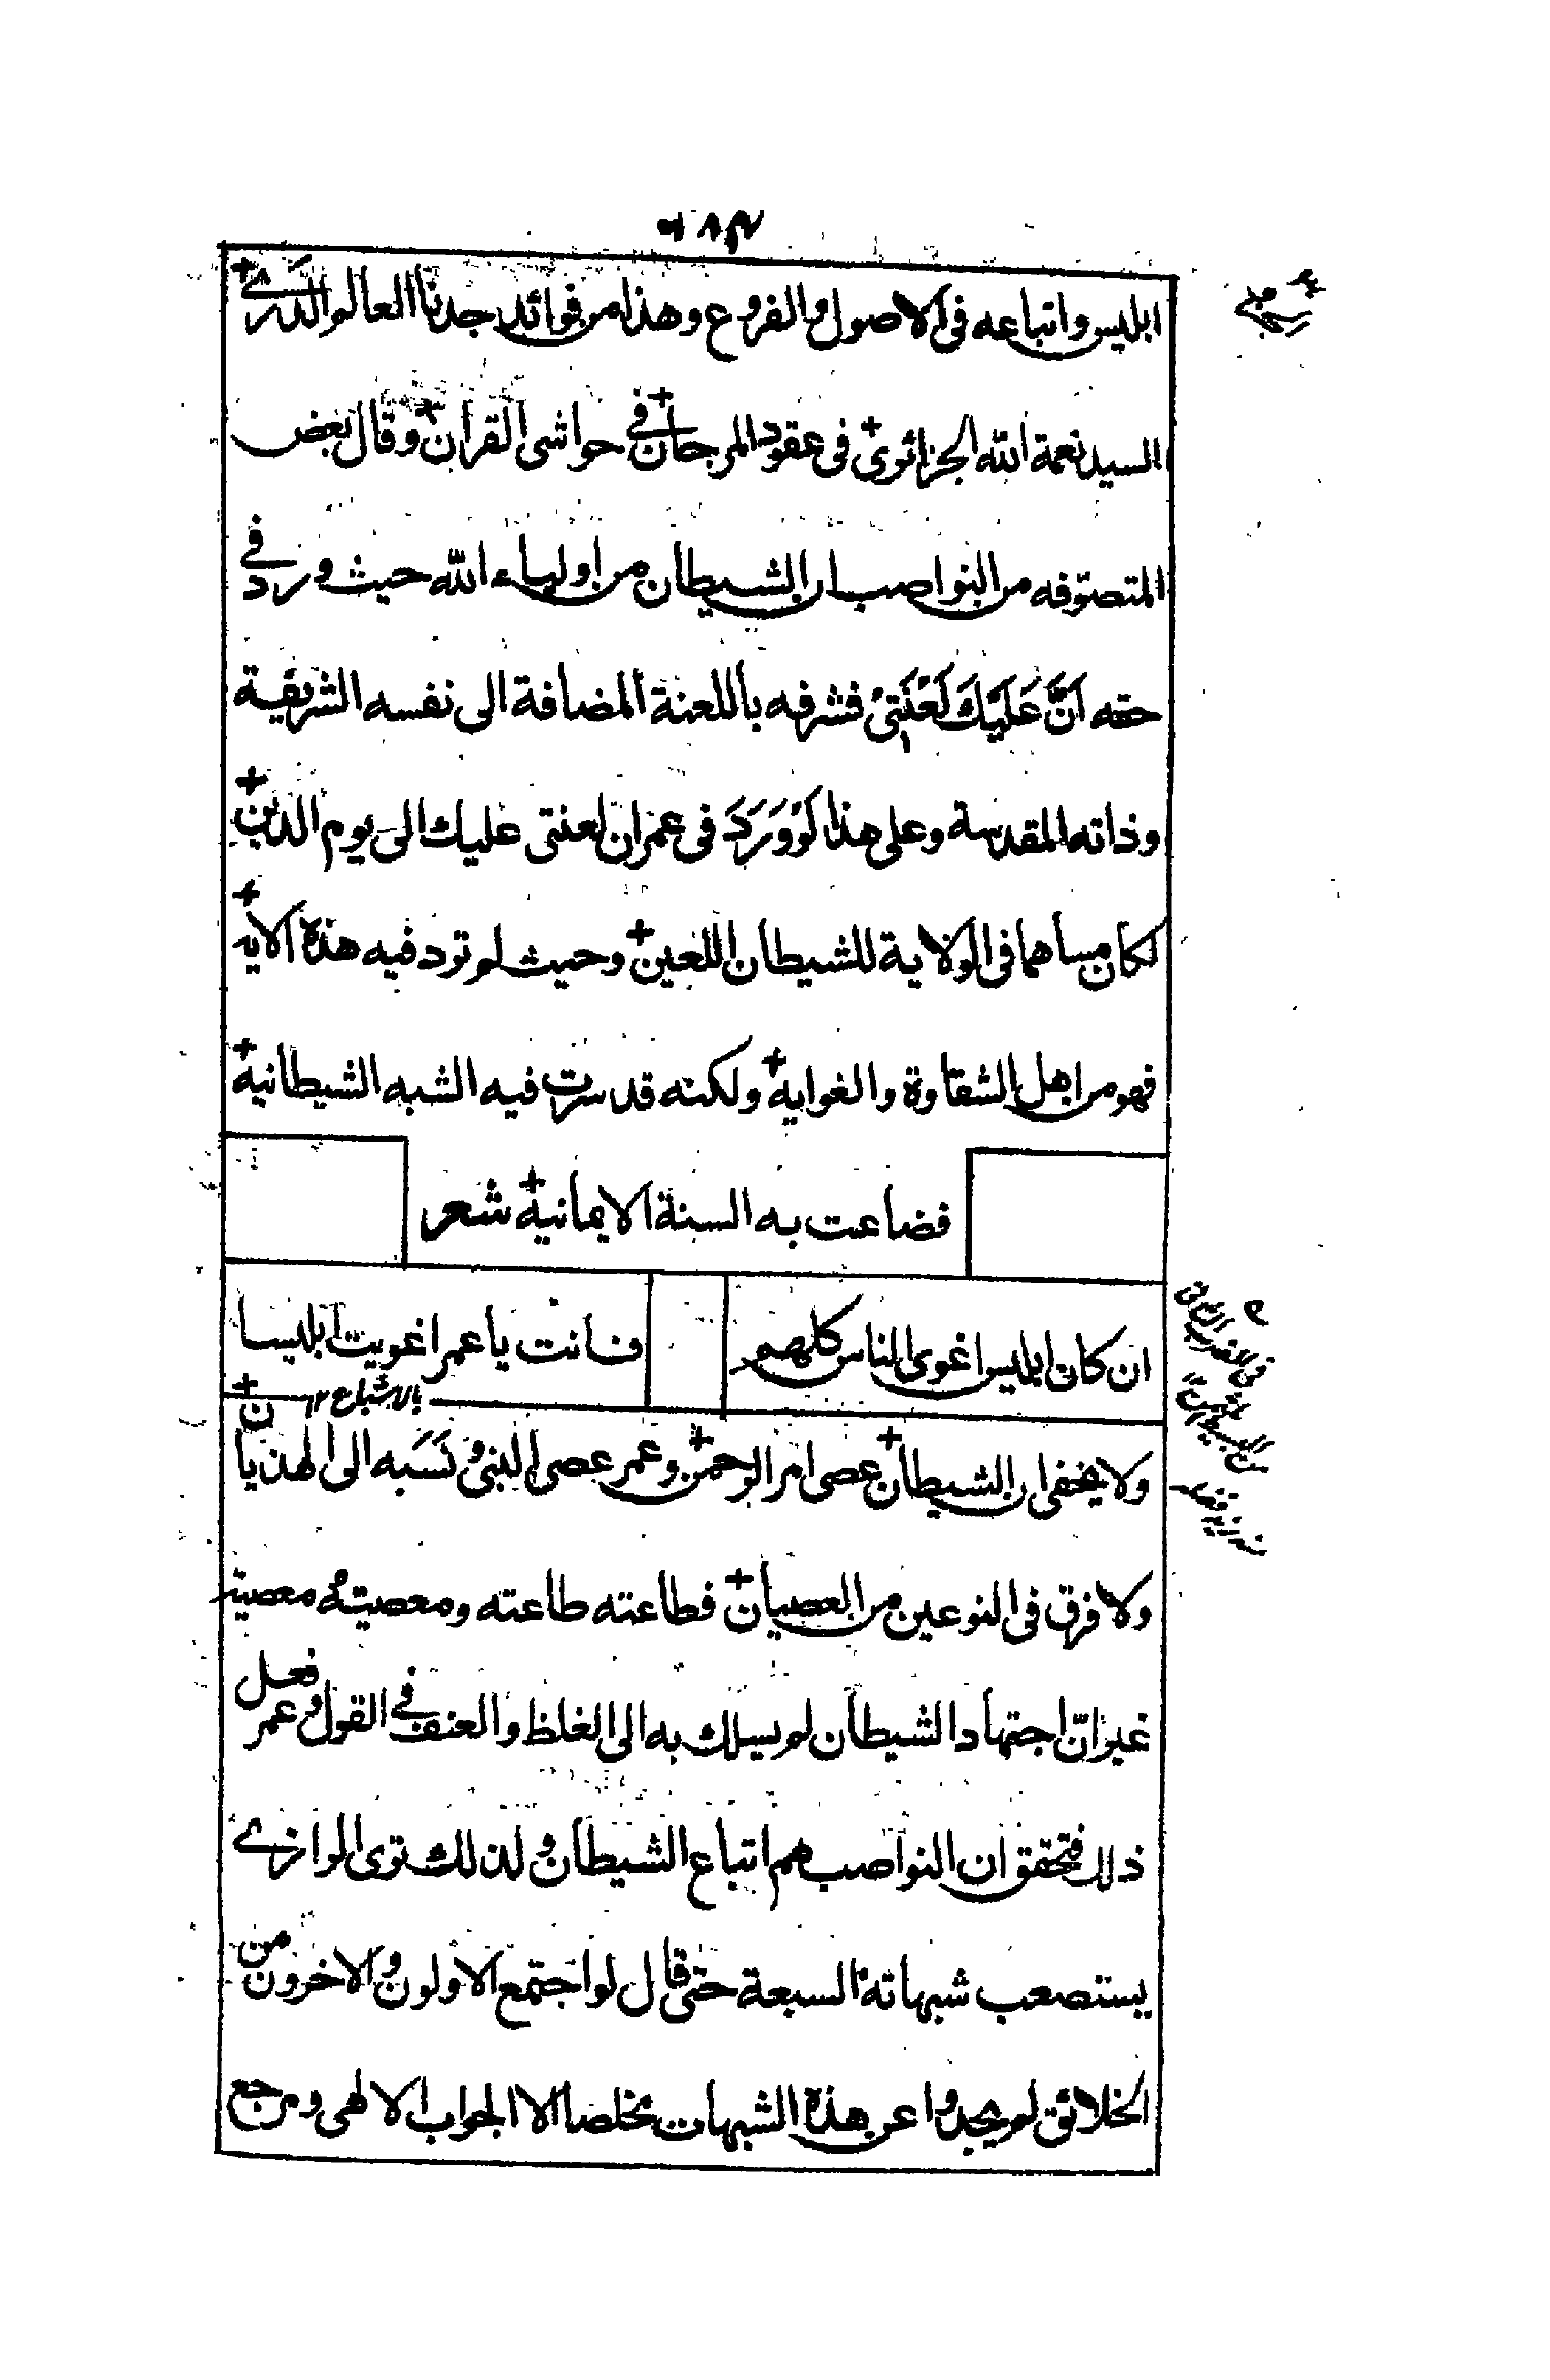 ابليس واتباعه فى الاصول والفروع وهذا من فوائد جدنا العالم الدرى
السيد نعمة الله الجزائرى فى عقود المرجان فى حواشى القران وقال بعض
المتصوّفه من النواصب ان الشيطان من اولياء الله حيث ورد فى
حقه اَنَّ عَلَيْكَ لَعْنَتِىْ فشرفه باللعنة المضافة الى نفسه الشريفية
وذاته المقدسة وعلى هذا لَوْ وَرَدَ فى عمر ان لعنتى عليك الىَ يوم الدين
لكان مساهما فى الولاية للشيطان اللعين وحيث لم ترد فيه هذه الايه
فهو من اهل الشقاوة والغوايه ولكنه قد سرت فيه الشبه الشيطانية
فضاعت به السنة الايمانية شعر
ان كان ابليس اغوى الناس كلهم فانت يا عمر اغويت ابليسا
بالاشباع ١٢
ولا يخفى ان الشيطان عصى امر الرحمن وعمر عصى النبى ونَسَبه الى الهذيان
ولا فرق فى النوعين من العصيان فطاعته طاعته ومعصيته معصيته
غير انّ اجتهاد الشيطان لم يسلك به الى الغلظ والعنف فى القول وعمر فعل
ذلك فتحقق ان النواصب هم اتباع الشيطان ولذلك ترى الرازى
يستصعب شبهاته السبعة حتى قال لو اجتمع الاولون والاخرون من
الخلائق لم يجدوا عن هذه الشبهات مخلصا الا الجواب الالهى ومرجع